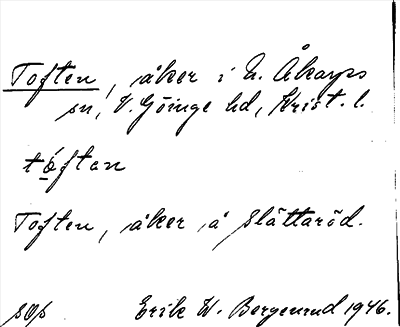 Toften, åker i N. Åkarps
sn, V. Göinge hd, Krist. l.
tóftan
Toften, åker å Slättaröd.
sop Erik W. Bergenrud 1946.